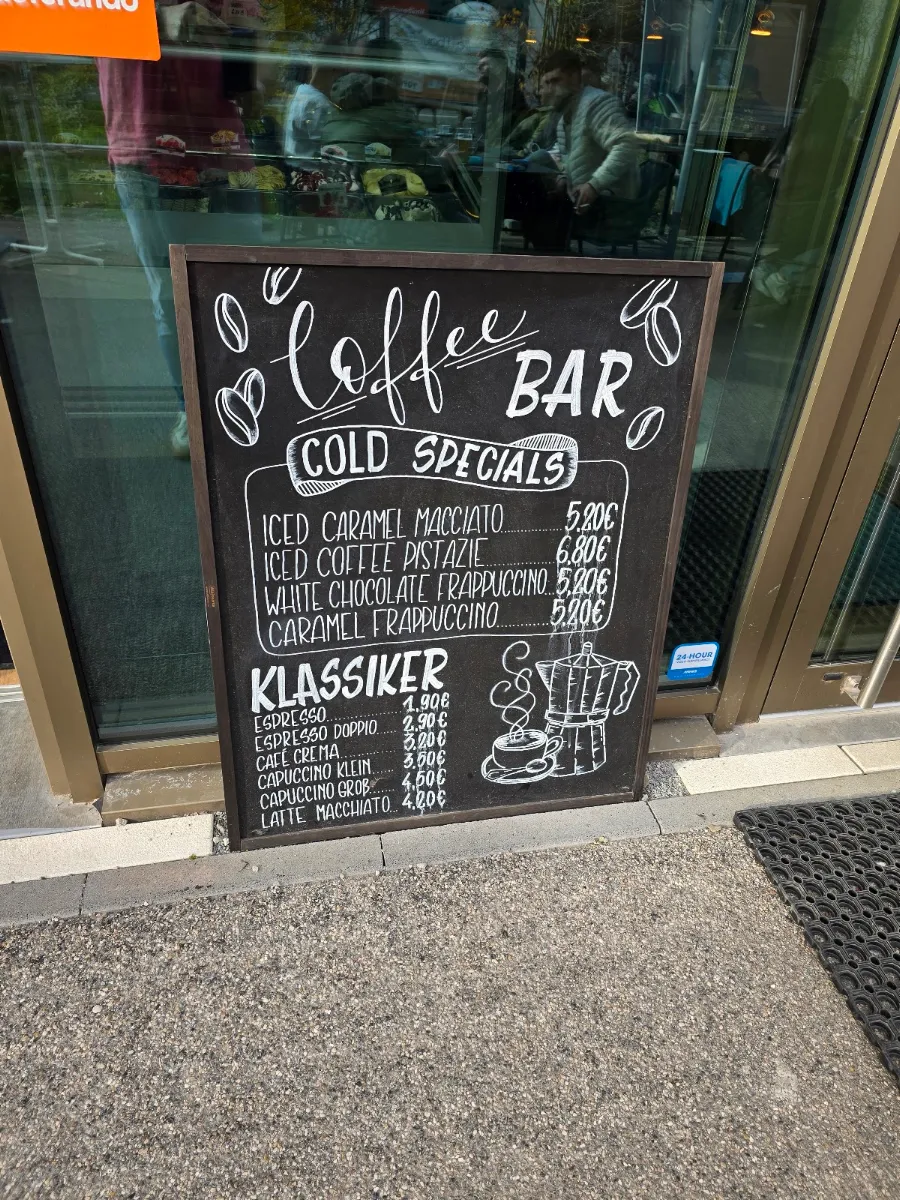 Coffee
BAR
COLD SPECIALS
ICED CARAMEL MACCIATO.............5,20€
ICED COFFEE PISTAZIE..............6,80€
WHITE CHOCOLATE FRAPPUCCINO...5,20€
CARAMEL FRAPPUCCINO...............5,20€
KLASSIKER
ESPRESSO..............1,90€
ESPRESSO DOPPIO.....2,90€
CAFÉ CREMA............3,20€
CAPUCCINO KLEIN.....3,50€
CAPUCCINO GROß.....4,50€
LATTE MACCHIATO..4,20€
24-HOUR